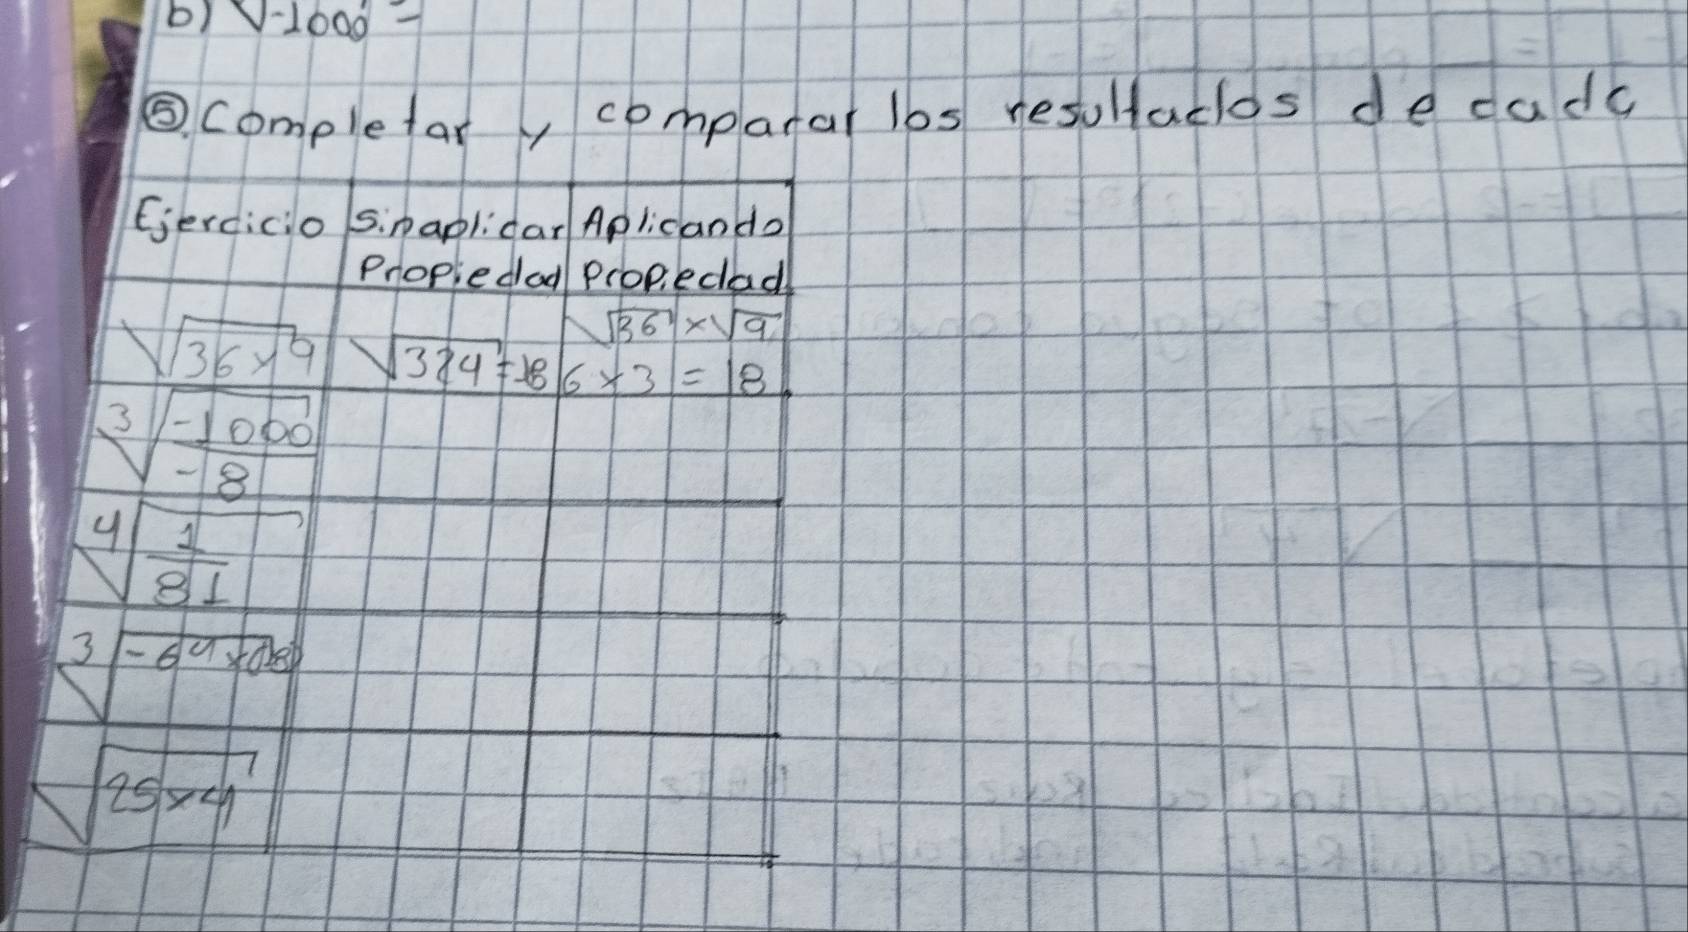 b) √-1000 =
⑤. Completar y comparar los resultados de cada
Ejercicio Sin aplicar Aplicando
Propiedad Propiedad
√36x9 √324 = 18 √36 x √9
6 x 3 = 18
³√-1000/-8
⁴√1/81
³√-64x(-8)
√25x4